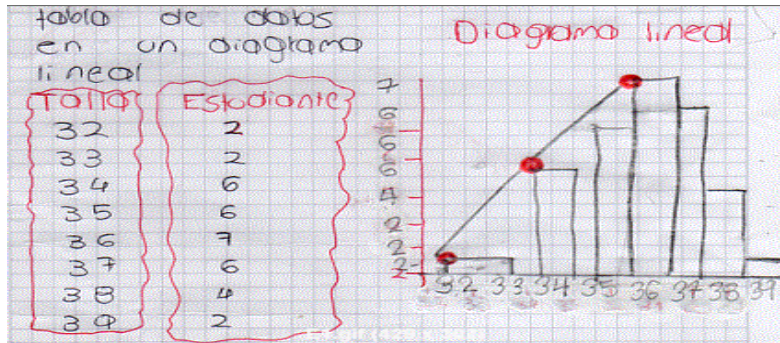 tabla de datos
en un diagrama
lineal
Talla Estudiante
32 2
33 2
34 6
35 6
36 7
37 6
38 4
39 2
Diagrama lineal
7
6
6
6
4
2
2
2
2
32 33 34 35 36 37 38 39